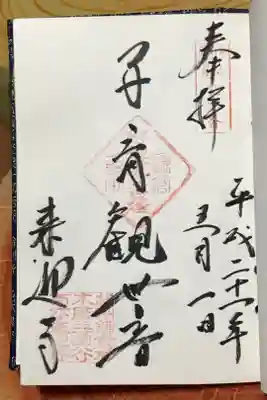 奉拝
平成二十一年
五月一日
子育観世音
来迎寺